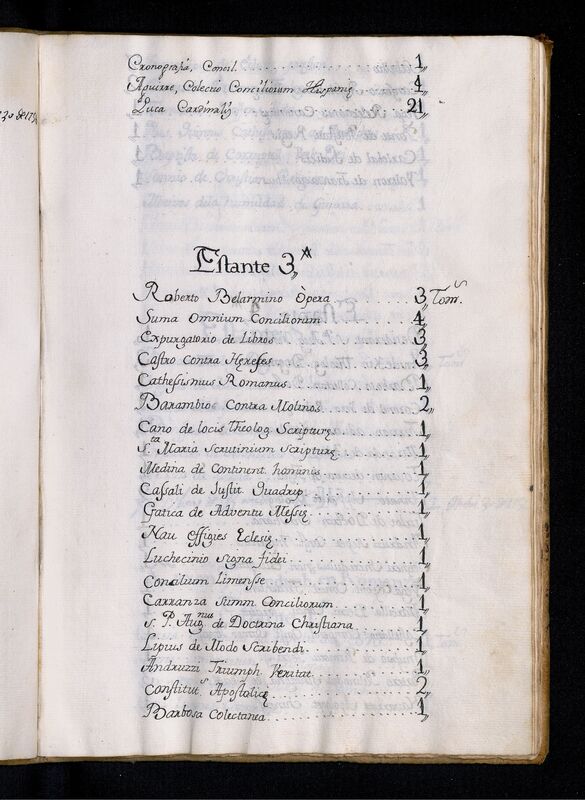 Cronografia, Concil. 1,,
Aguirre, Colectio Conciliorum Hispanię 4,,
Luca Cardinalis 21,,
Estante 3,,ª
Roberto Belarmino Òpera 3,, Toms.
Suma Omnium Conciliorum 4,,
Expurgatorio de Libros 3,,
Castro Contra Hereses 3,,
Cathessismus Romanus 1,,
Barambios Contra Molinos 2,,
Cano de locis Theolog. Scripturę 1,,
S.ta Maria Scrutinium Scripturę 1,,
Medina de Continent. hominis 1,,
Cassali de Justit. Quadrip. 1,,
Gatica de Adventu Messię 1,,
Nau effigies Eclesię 1,,
Luchecinio signa fidei 1,,
Concilium Limensse 1,,
Carranza Summ. Conciliorum 1,,
S. P. Aug.nus de Doctrina Christiana 1,,
Lipius de Modo Scribendi 1,,
Andruzzi Triumph. Veritat. 1,,
Constitut.s Apostolicę 2,,
Barbosa Colectanea 1,,